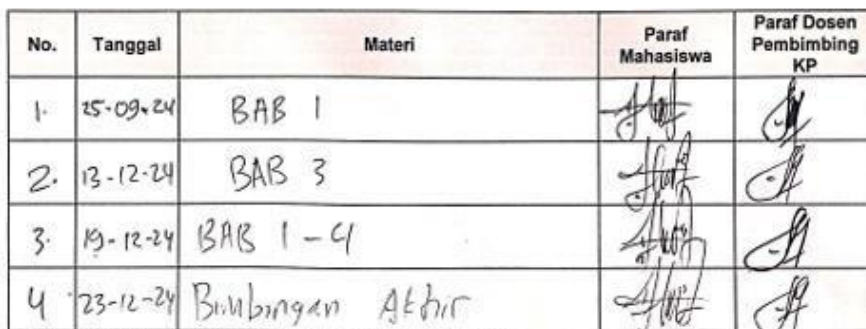 No. Tanggal Materi Paraf Mahasiswa Paraf Dosen Pembimbing KP
1. 25-09-24 BAB 1
2. 13-12-24 BAB 3
3. 19-12-24 BAB 1-4
4 23-12-24 Bimbingan Akhir